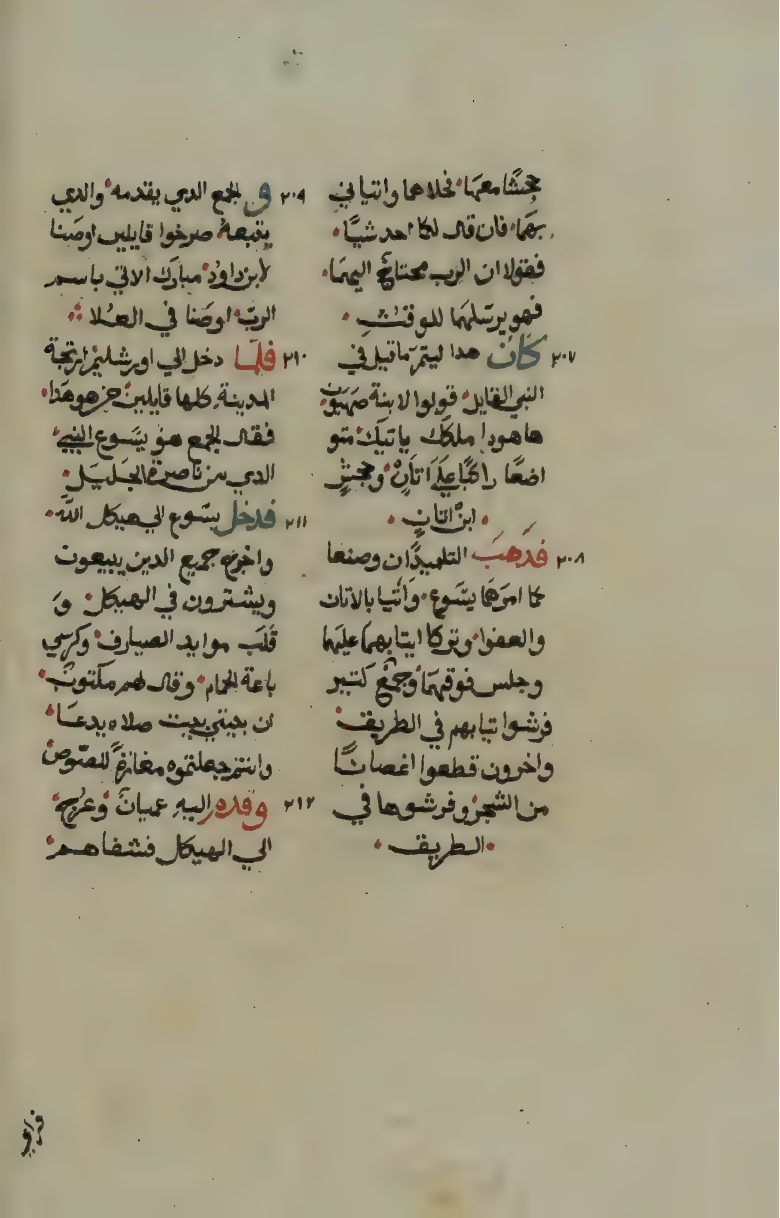 جحشًا معها فحلاهما واتيا ني
بهما فان قال لكما احد شيًا
فقولا ان الرب محتاج اليهما
فهو يرسلهما للوقت
٢٠٧ كان هدا ليتم ما قيل في
النبي القايل قولوا لابنة صهيون
ها هودا ملكك ياتيك متو
اضعًا راكبًا علي اتان وجحش
ابن اتان
٢٠٨ فدهب التلميدان وصنعا
كما امرهما يسوع واتيا بالاتان
والعفوا وتركا اتيابهما عليها
وجلس فوقهما وجمع كتير
فرشوا تيابهم في الطريق
واخرون قطعوا اغصانًا
من الشجر وفرشوها في
الطريق
٢٠٩ و الجمع الدي يقدمه والدي
يتبعه صرخوا قايلين اوصنا
لابن داود مبارك الاتي باسم
الرب اوصنا في العلا
٢١٠ فلما دخل الي اورشليم ارتجة
المدينة كلها قايلين من هو هدا
فقال الجمع هو يسوع النبي
الدي من ناصرة الجليل
٢١١ فدخل يسوع الي هيكل الله
واخرج جميع الدين يبيعون
ويشترون في الهيكل و
قلب موايد الصيارف وكرسي
باعة الحمام وقال لهم مكتوب
ان بيتي بيت صلاه يدعا
وانتم جعلتموه مغارة للصوص
٢١٢ وقدم اليه عميان وعرج
الي الهيكل فشفاهم